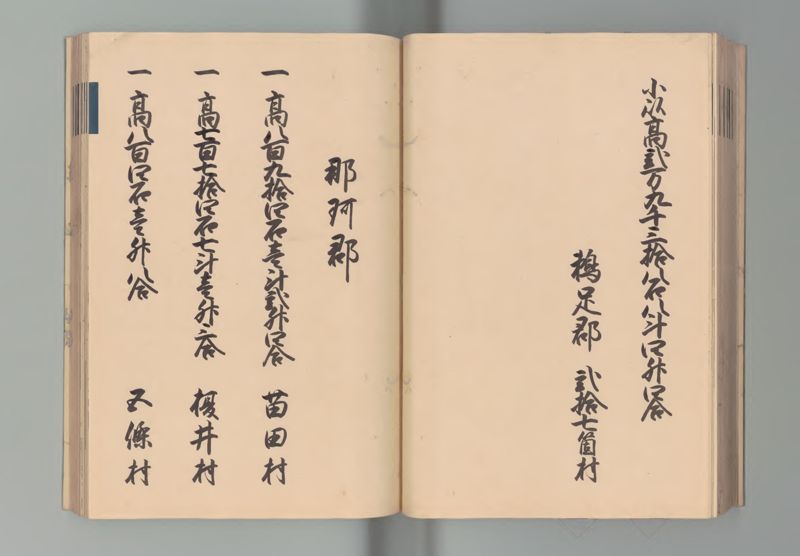 小以高弐万九千三拾八石八斗四升四合
鵜足郡 弐拾七箇村
那珂郡
一高八百九拾四石壱斗弐升四合 苗田村
一高七百七拾四石七斗壱升六合 榎井村
一高八百四石壱升八合 五條村